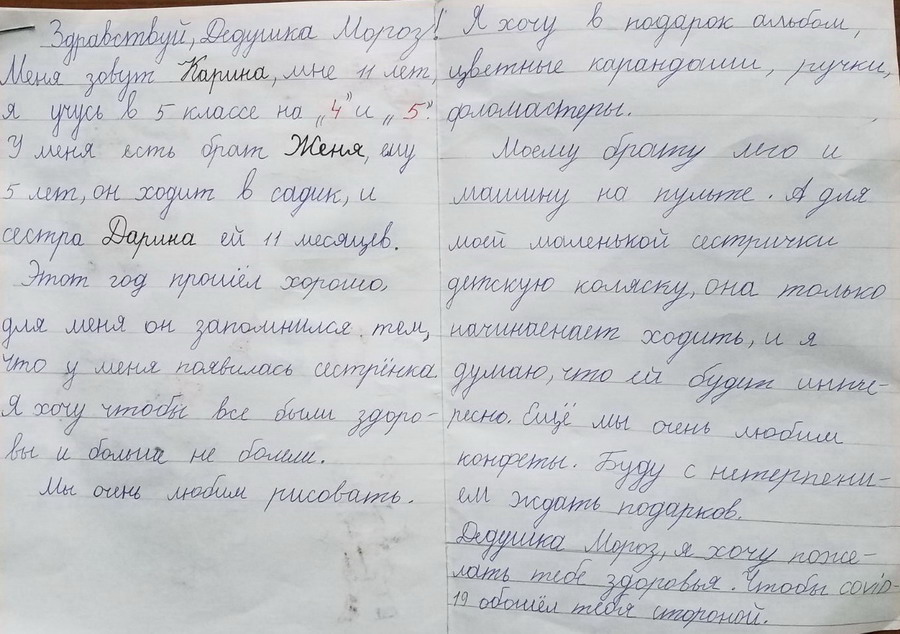 Здравствуй, Дедушка Мороз!
Меня зовут Карина, мне 11 лет,
я учусь в 5 классе на „4" и „5".
У меня есть брат Женя, ему
5 лет, он ходит в садик, и
сестра Дарина ей 11 месяцев.
Этот год прошёл хорошо,
для меня он запомнился тем,
что у меня появилась сестрёнка
Я хочу чтобы все были здоро-
вы и больше не болели.
Мы очень любим рисовать.
Я хочу в подарок альбом,
цветные карандаши, ручки,
фломастеры.
Моему брату лего и
машину на пульте. А для
моей маленькой сестрички
детскую коляску, она только
начинаенает ходить, и я
думаю, что ей будет инте-
ресно. Ещё мы очень любим
конфеты. Буду с нетерпени-
ем ждать подарков.
Дедушка Мороз, я хочу поже-
лать тебе здоровья. Чтобы covid-
19 обошёл тебя стороной.